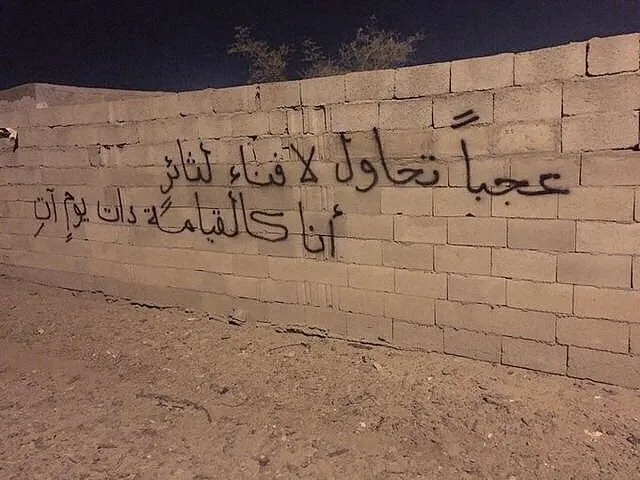 عجباً تحاول لا فناء لثائرٍ
أنا كالقيامة ذات يومٍ آتِ